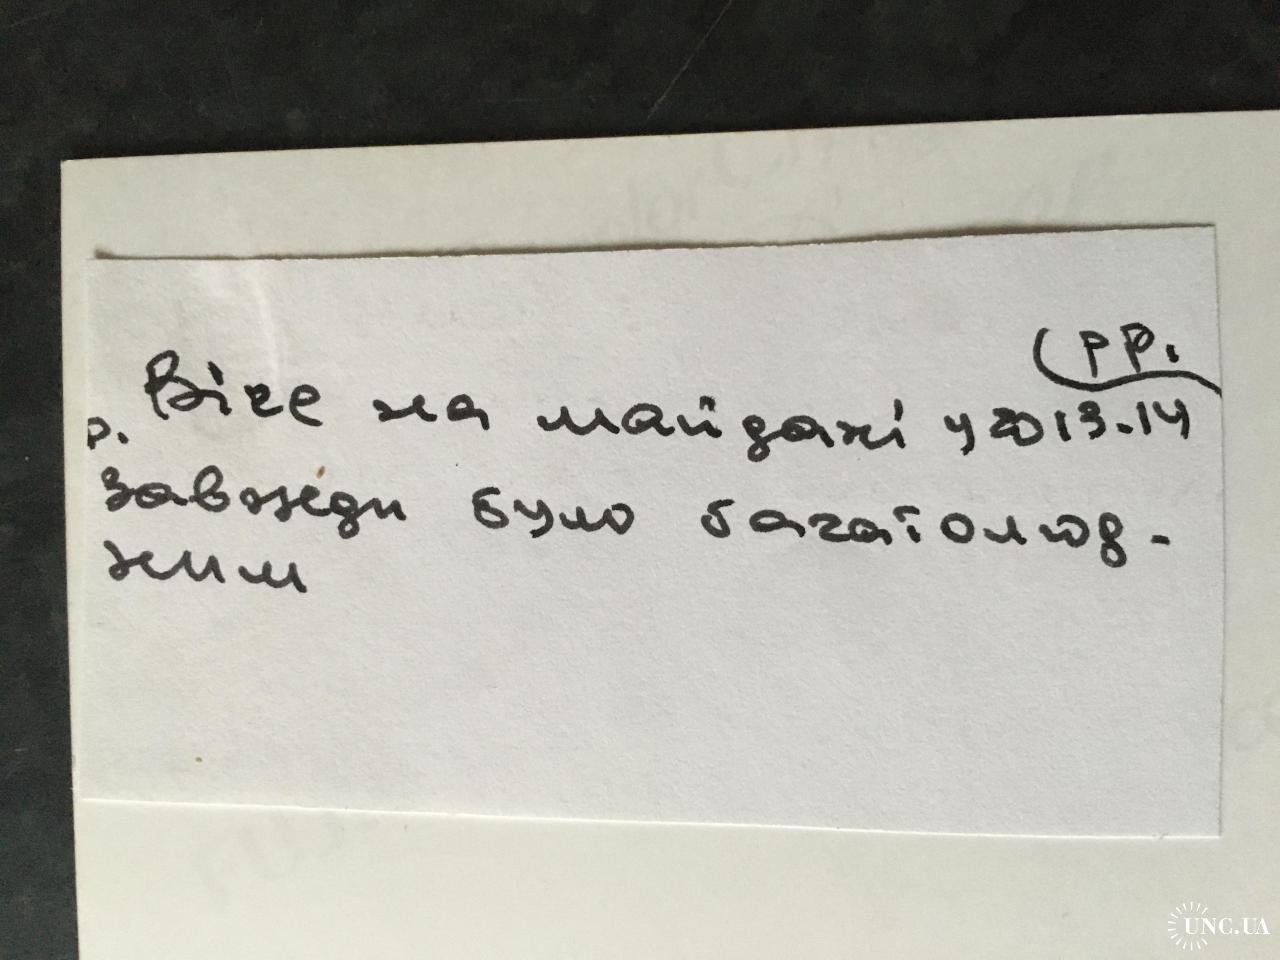 рр.
Віче на майдані у 2013-14
р.
завжди було багатолюд-
ним
UNC.UA